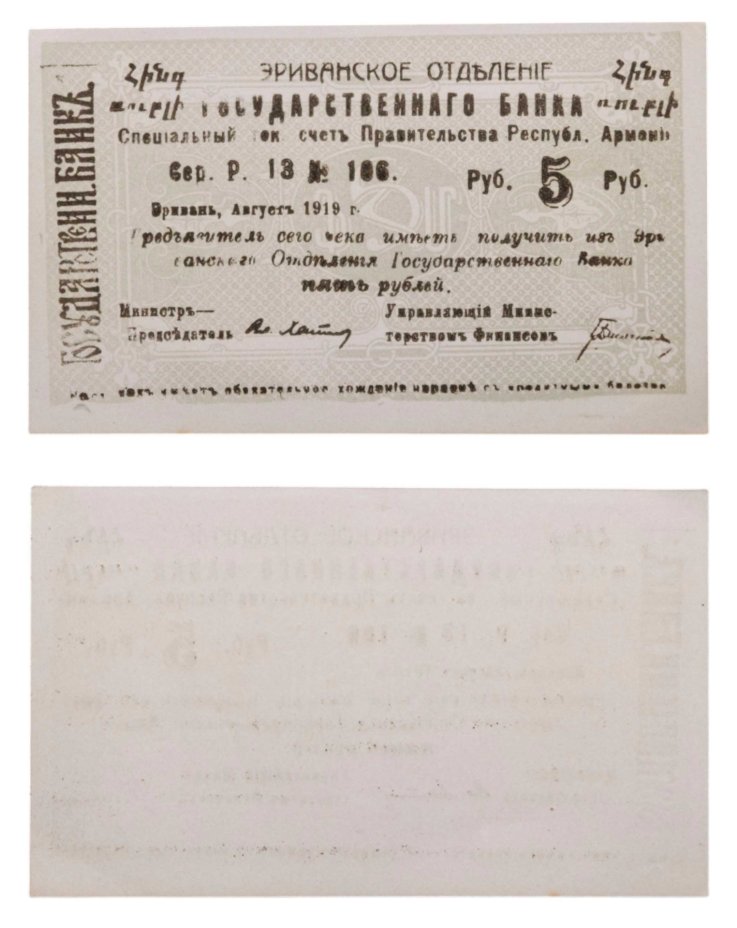 ГОСУДАРСТВЕНН. БАНКЪ.
Հինգ
ЭРИВАНСКОЕ ОТДѢЛЕНІЕ
Հինգ
ռուբլի
ГОСУДАРСТВЕННАГО БАНКА
ռուբլի
Спеціальный тек счетъ Правительства Республ. Арменіи
Сер. Р. 13 № 186.
Руб. 5 Руб.
Эривань, Августъ 1919 г.
Предъявитель сего чека имѣетъ получить изъ Эри
ванскаго Отдѣленія Государственнаго Банка
пять рублей.
Министръ—
Предсѣдатель
Управляющій Минис-
терствомъ Финансовъ
чекъ имѣетъ обязательное хожденіе наравнѣ съ кредитными билетами